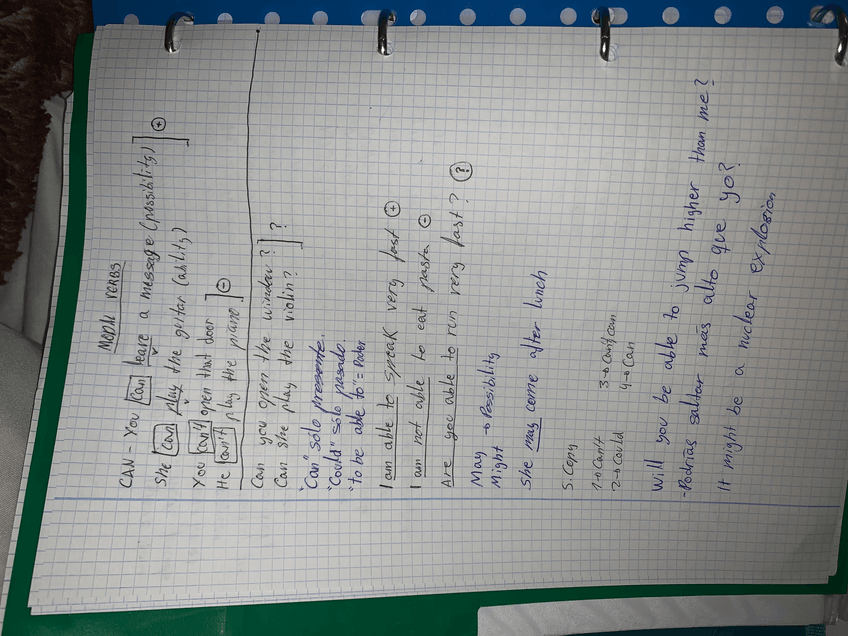 MODAL VERBS
CAN - You can leave a message (possibility)
She can play the guitar (ability) ] +
You can't open that door
He can't play the piano ] -
Can you open the window?
Can she play the violin? ] ?
"Can" solo presente.
"Could" solo pasado.
"to be able to" = Poder
I am able to speak very fast +
I am not able to eat pasta -
Are you able to run very fast? ?
May → Possibility
Might
She may come after lunch
5. Copy
1→Can't 3→Can't/can
2→Could 4→Can
Will you be able to jump higher than me?
-Podrías saltar más alto que yo?
It might be a nuclear explosion